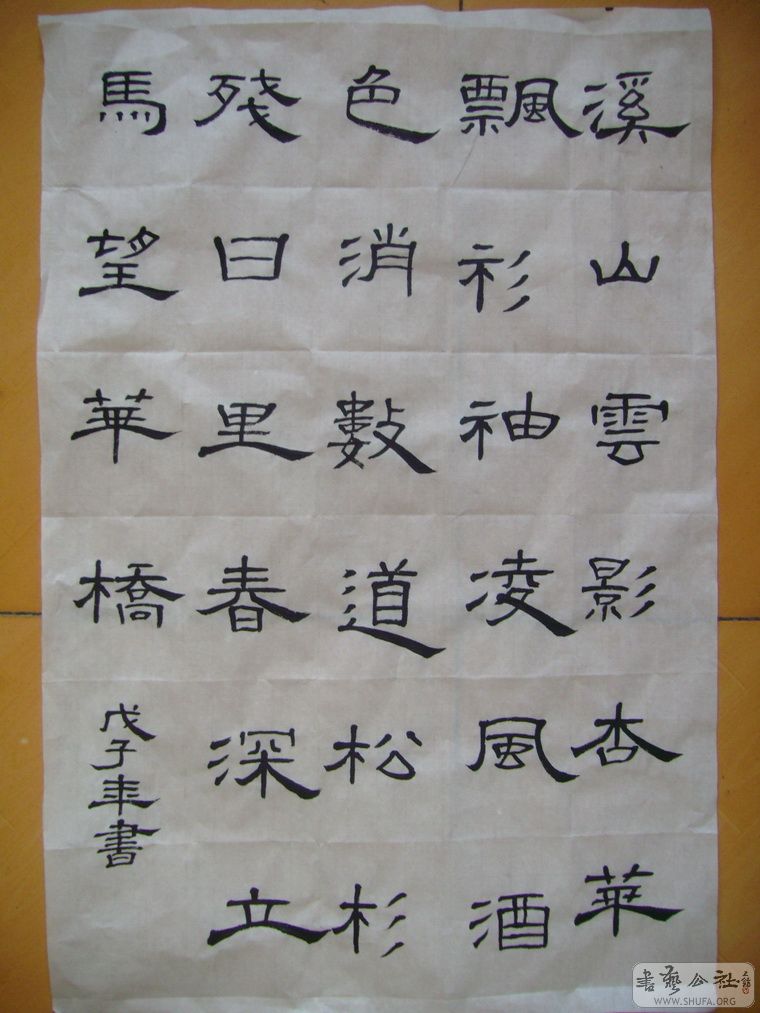 溪山雲影杏華
飄衫袖凌風酒
色消數道松杉
殘日里春深立
馬望華橋
戊子年書
書藝公社
WWW.SHUFA.ORG